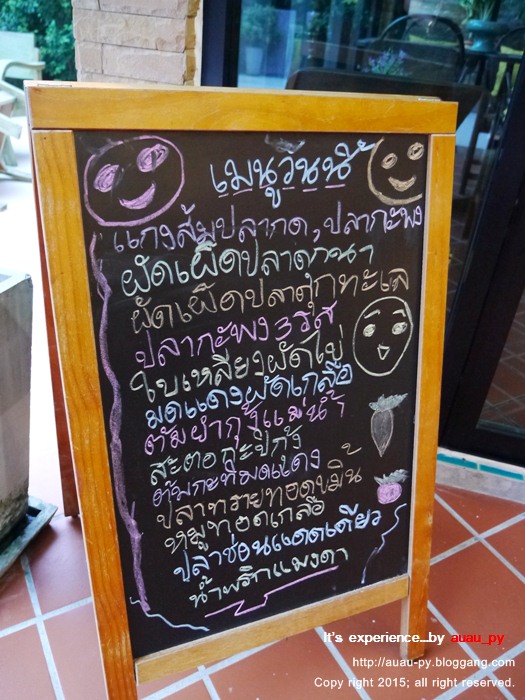 เมนูวันนี้
แกงส้มปลากด,ปลากะพง
ผัดเผ็ดปลาดุกนา
ผัดเผ็ดปลาดุกทะเล
ปลากะพง3รส
ใบเหลียงผัดไข่
มดแดงผัดเกลือ
ต้มยำกุ้งแม่น้ำ
สะตอกะปิกุ้ง
ต้มกะทิมดแดง
ปลาทรายทอดขมิ้น
หมูทอดเกลือ
ปลาช่อนแดดเดียว
น้ำพริกแมงดา
It's experience...by auau_py
http://auau-py.bloggang.com
Copy right 2015; all right reserved.